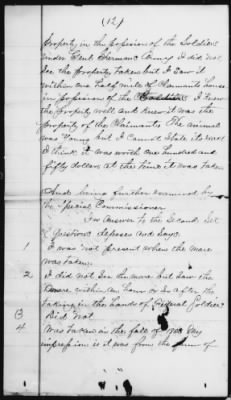 (12)
Property in the possession of the Soldiers
under Genl Shermans Army I did not
see the property taken but I saw it
within one half mile of Claimants house
in possession of the Soldiers I knew
the property well and knew it was the
property of the Claimants The animal
was Young but I cannot State its ages
I think it was worth one hundred and
fifty dollars at the time it was taken
And being further examined by
the Special Commissioner
In Answer to the Second Set
of questions deposes and Says
1 I was not present when the mare
was taken.
2 I did not See the mare but saw the
mare within an hour or So after the
taking in the hands of Federal Soldiers
3 Did Not
4 Was taken in the fall of My
impression is it was from the of